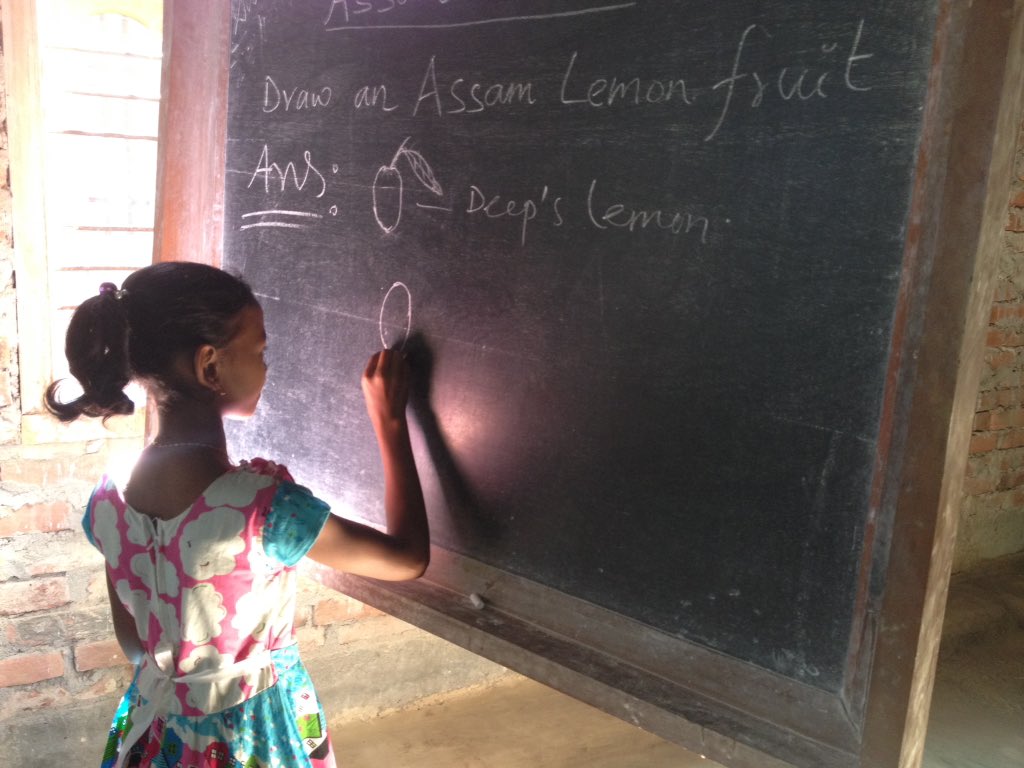 Draw an Assam Lemon fruit
Ans:
Deep's lemon.